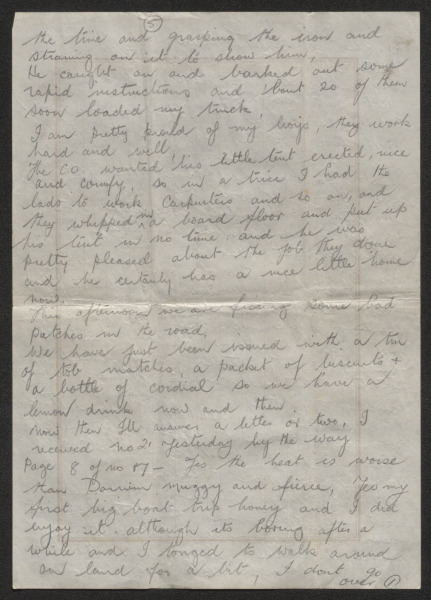 5
the time and grasping the iron and
straining on it to show him,
He caught on and barked out some
rapid instructions and bout 20 of them
soon loaded my truck
I am pretty proud of my boys, they work
hard and well,
The C.O. wanted his little tent erected, nice
and comfy, so in a trice I had the
lads to work Carpenters and so on, and
they whipped in a board floor and put up
his tent in no time and he was
pretty pleased about the job they done
and he certainly has a nice little home
now.
This afternoon we are fixing some bad
patches in the road,
We have just been issued with a tin
of tob matches, a packet of biscuits +
a bottle of cordial so we have a
lemon drink now and then.
now then I'll answer a letter or two, I
received no 2' yesterday by the way
Page 8 of no 87 – Yes the heat is worse
than Darwin muggy and fierce, Yes my
first big boat trip honey and I did
enjoy it although its boring after a
while and I longed to walk around
on land for a bit, I dont go
over